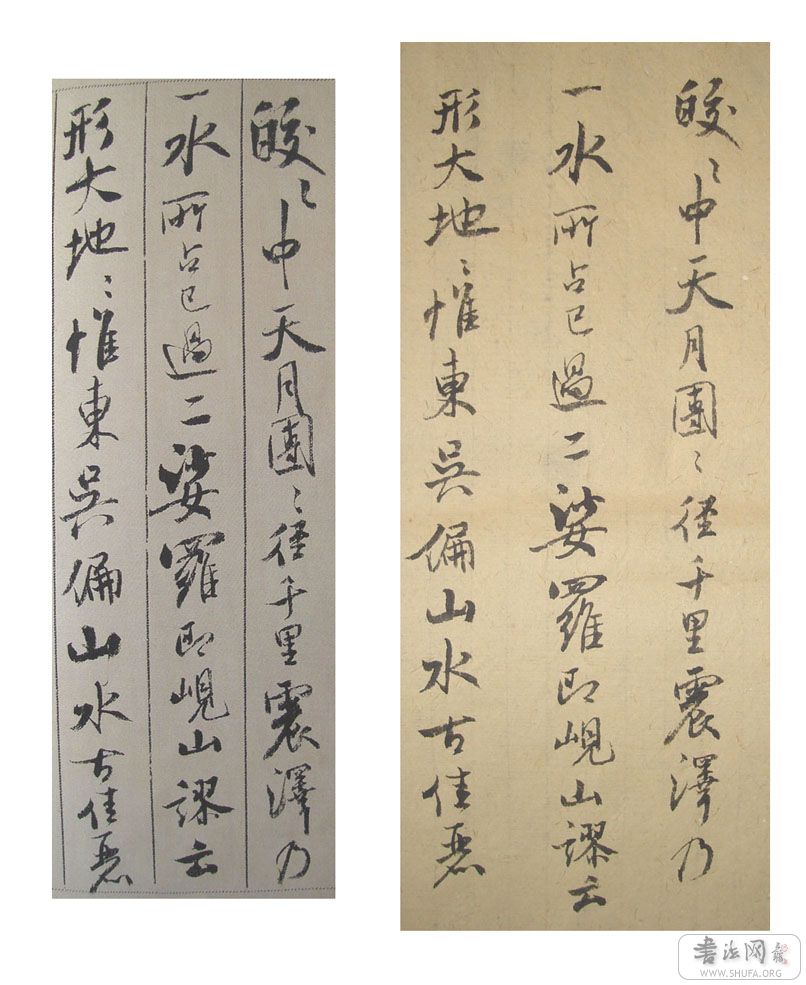 皎々中天月團々徑千里震澤乃
一水所占已過二娑羅即峴山謬云
形大地々惟東吳偏山水古佳麗
皎々中天月團々徑千里震澤乃
一水所占已過二娑羅即峴山謬云
形大地々惟東吳偏山水古佳麗
書法网
WWW.SHUFA.ORG